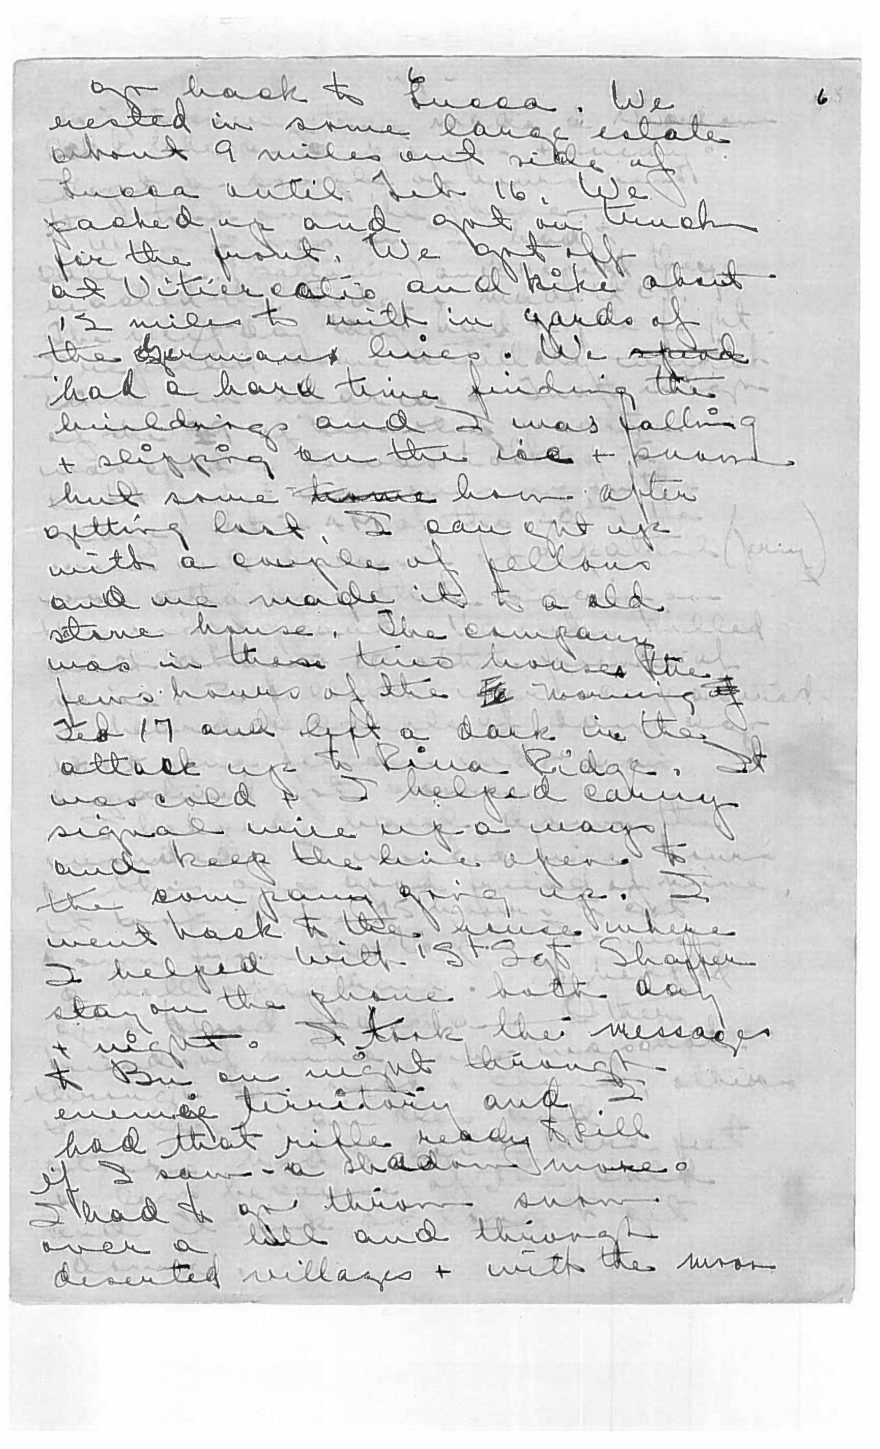 6
go back to Lucca. We
rested in some large estate
about 9 miles out side of
Lucca until Feb 16. We
packed up and got on truck
for the front. We got off
at Vitiercatio and hike about
12 miles to with in yards of
the Germans lines. We spend
had a hard time finding the
buildings and I was falling
+ slipping on the ice + snow
but some how after
getting lost, I caught up
with a couple of fellows
and we made it to a old
stone house. The company
was in these two houses the
few hours of the morning of
Feb 17 and left a dark in the
attack up to Riva Ridge. It
was cold + I helped carry
signal wire up a ways
and keep the line open to
the company going up. I
went back to the house where
I helped with 1St Sgt Shaffer
stay on the phone both day
+ night. I took the messages
to Bn on night through
enemie territory and I
had that rifle ready to kill
if I saw a shadow move.
I had to go throw snow
over a hill and through
deserted villages + with the moon